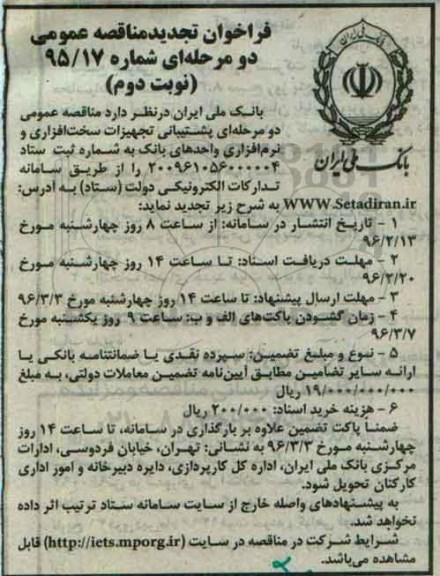 فراخوان تجدیدمناقصه عمومی
دو مرحله‌ای شماره ۹۵/۱۷
(نوبت دوم)
بانک ملی ایران
بانک ملی ایران درنظر دارد مناقصه عمومی
دو مرحله‌ای پشتیبانی تجهیزات سخت‌افزاری و
نرم‌افزاری واحدهای بانک به شماره ثبت ستاد
۲۰۰۹۶۱۰۵۶۰۰۰۰۰۴ را از طریق سامانه
تدارکات الکترونیکی دولت (ستاد) به آدرس:
WWW.Setadiran.ir به شرح زیر تجدید نماید:
۱ - تاریخ انتشار در سامانه: از ساعت ۸ روز چهارشنبه مورخ
۹۶/۲/۱۳
۲ - مهلت دریافت اسناد: تا ساعت ۱۴ روز چهارشنبه مورخ
۹۶/۲/۲۰
۳ - مهلت ارسال پیشنهاد: تا ساعت ۱۴ روز چهارشنبه مورخ ۹۶/۳/۳
۴ - زمان گشودن پاکت‌های الف و ب: ساعت ۹ روز یکشنبه مورخ
۹۶/۳/۷
۵ - نوع و مبلغ تضمین: سپرده نقدی یا ضمانتنامه بانکی یا
ارائه سایر تضامین مطابق آیین‌نامه تضمین معاملات دولتی، به مبلغ
۱۹/۰۰۰/۰۰۰/۰۰۰ ریال
۶ - هزینه خرید اسناد: ۲۰۰/۰۰۰ ریال
ضمنا پاکت تضمین علاوه بر بارگذاری در سامانه، تا ساعت ۱۴ روز
چهارشنبه مورخ ۹۶/۳/۳ به نشانی: تهران، خیابان فردوسی، ادارات
مرکزی بانک ملی ایران، اداره کل کارپردازی، دایره دبیرخانه و امور اداری
کارکنان تحویل شود.
به پیشنهادهای واصله خارج از سایت سامانه ستاد ترتیب اثر داده
نخواهد شد.
شرایط شرکت در مناقصه در سایت (http://iets.mporg.ir) قابل
مشاهده می‌باشد.